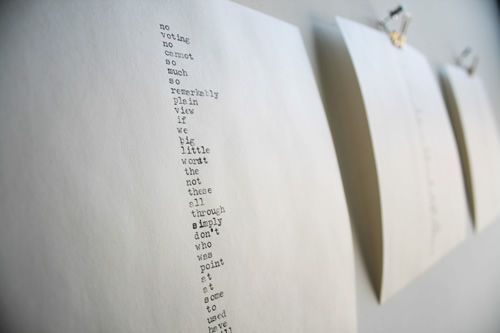 no
voting
no
cannot
so
much
so
remarkably
plain
view
if
we
big
little
worst
the
not
these
all
through
simply
don't
who
was
point
at
at
some
to
used
have